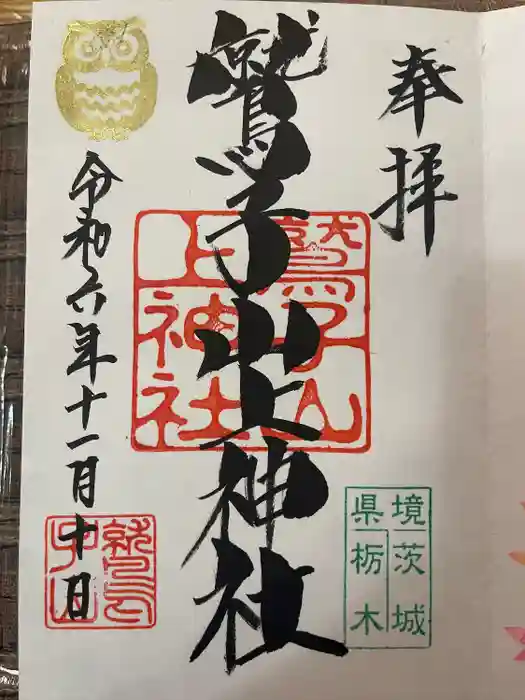 奉拝
鷲子山上神社
鷲子山
上神社
令和六年十一月十日
境茨城
県栃木